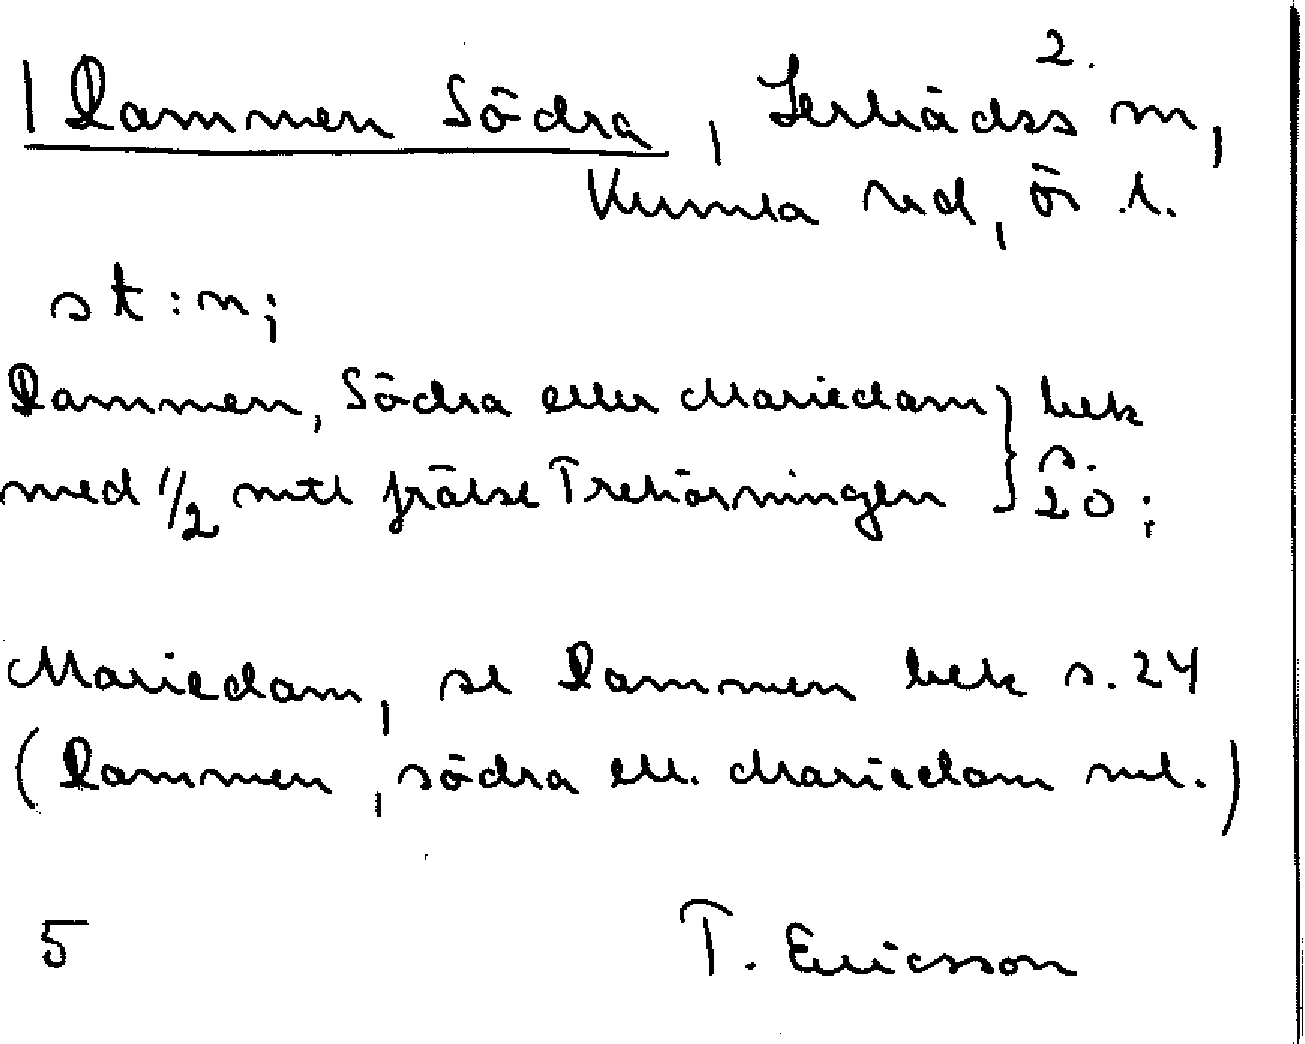 2.
| Dammen Södra, Lerbäcks sn,
Kumla hd, Ör l.
st:n;
Dammen, Södra eller Mariedam } bek
med 1/2 mtl frälse Trehörningen } s. 20;
Mariedam, se Dammen bek s. 24
(Dammen, södra ell. Mariedam
5
T. Ericsson